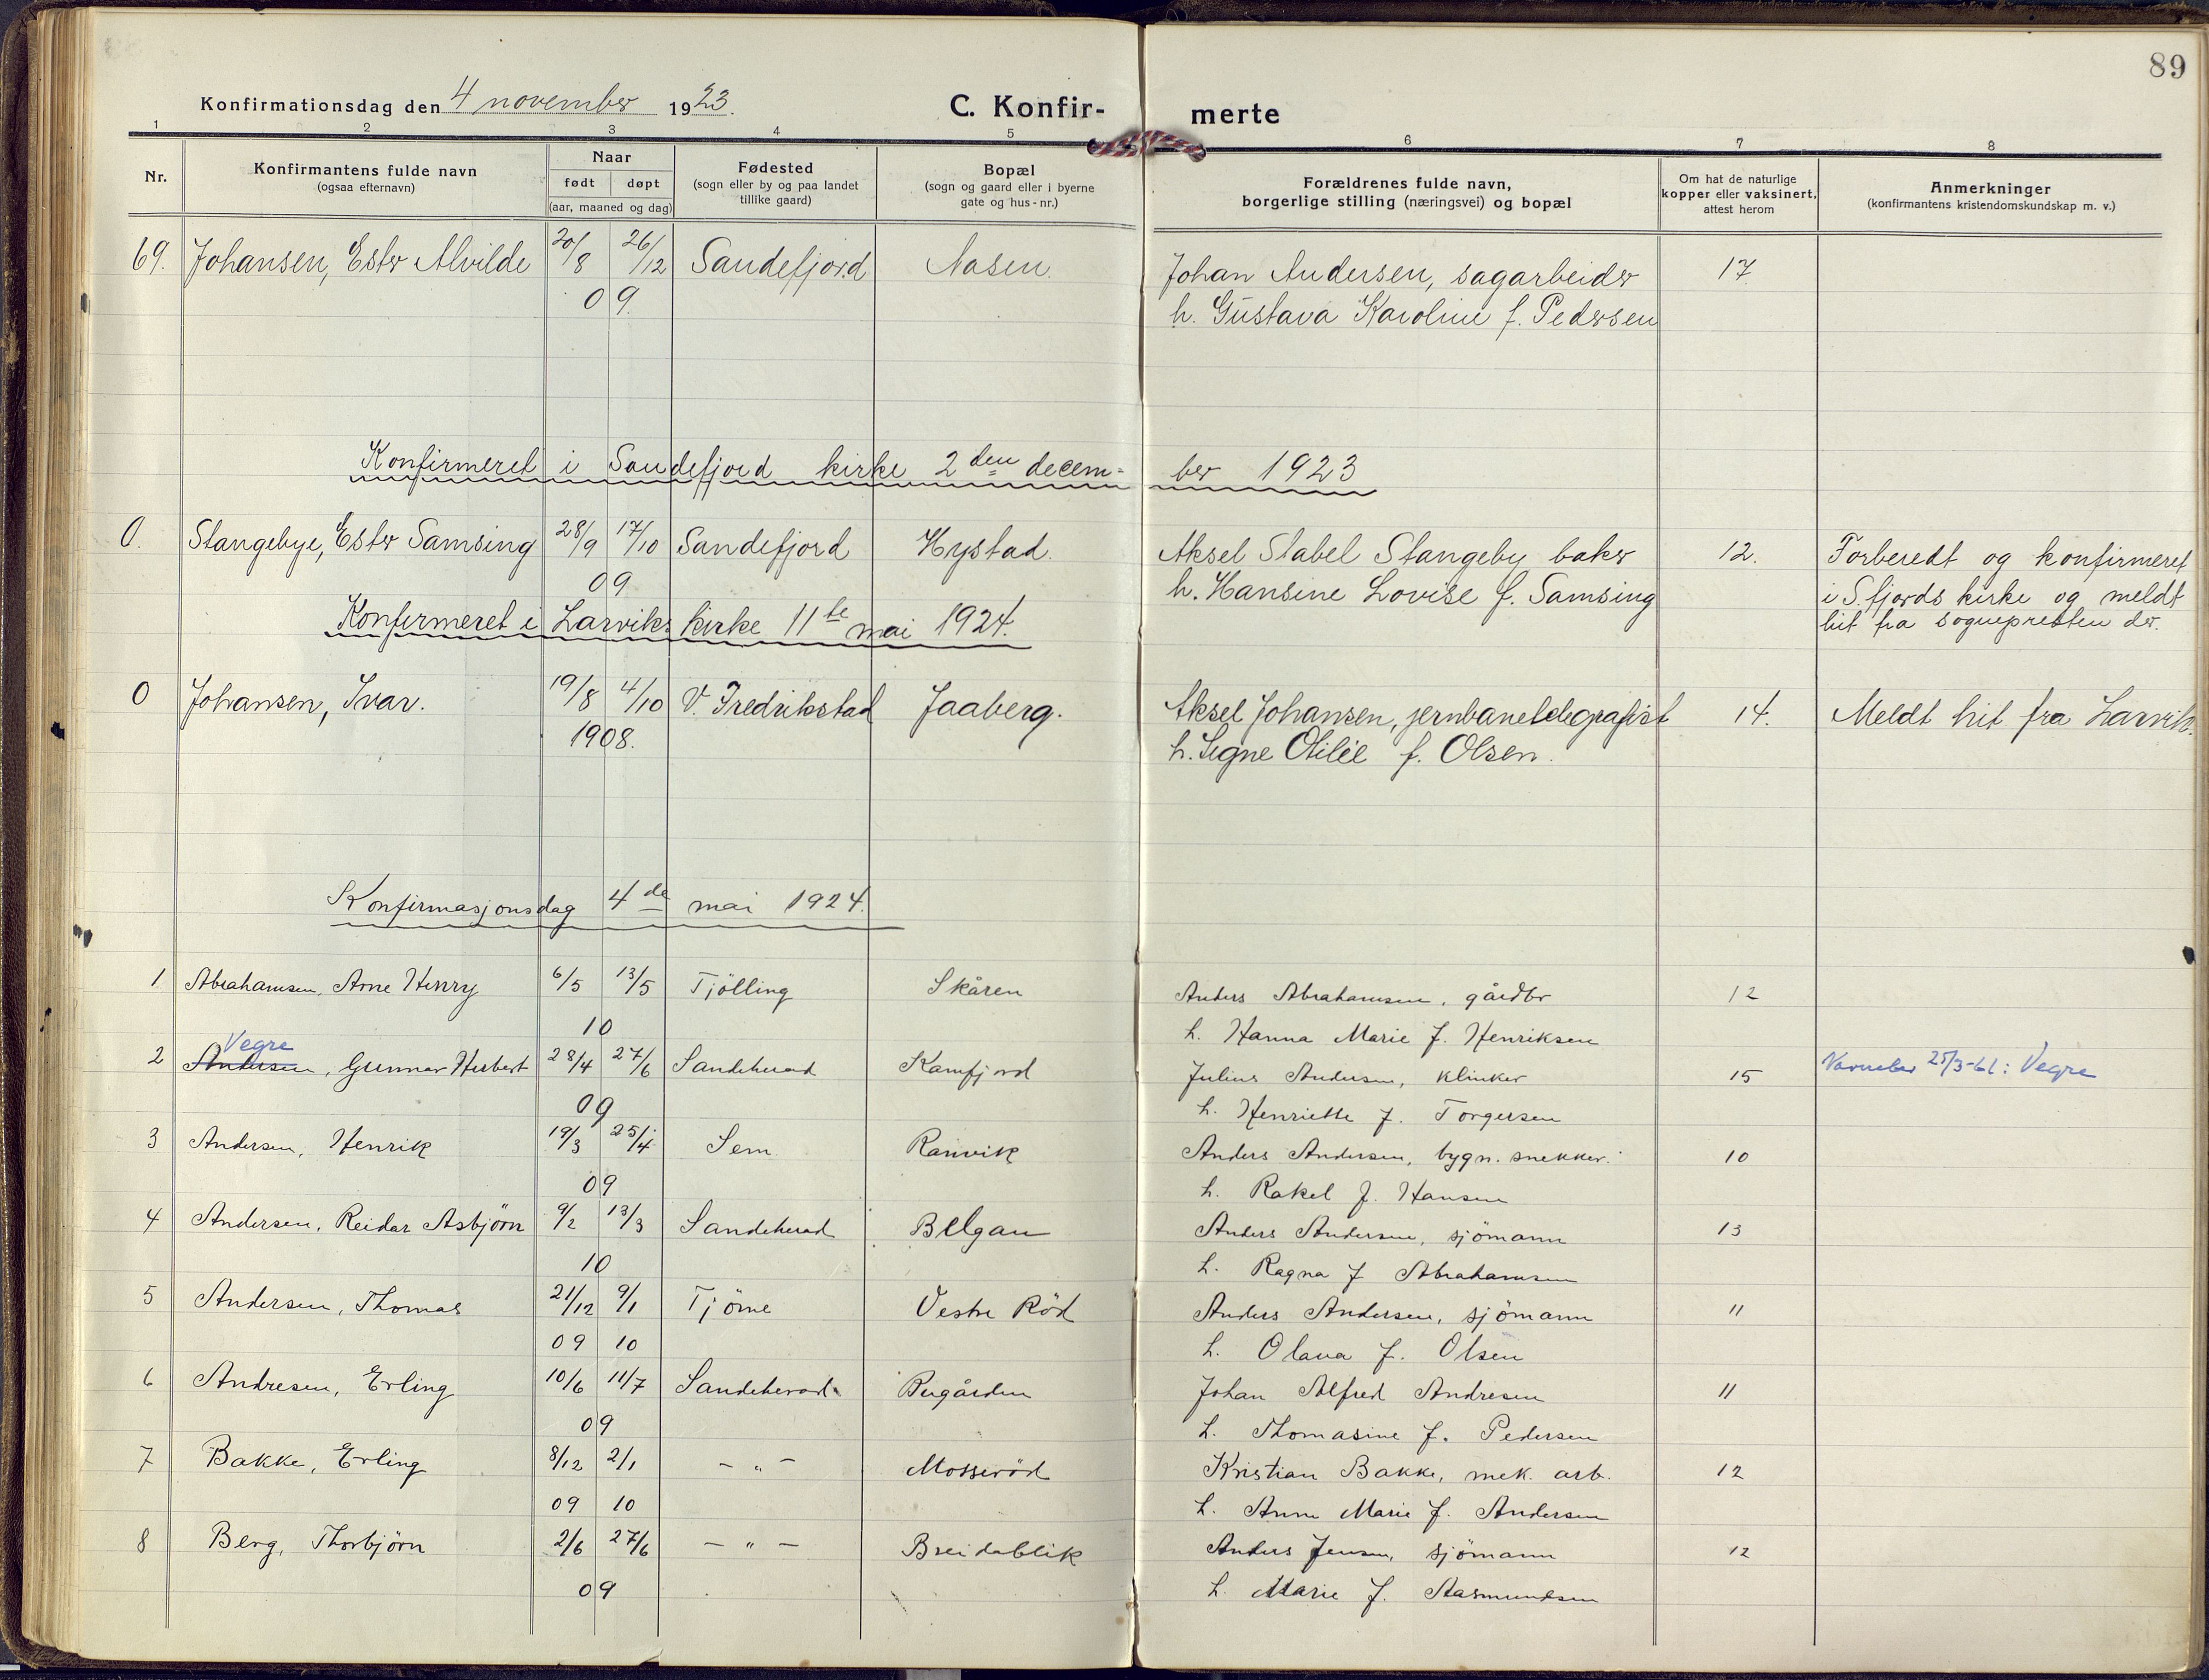 89
Konfirmationsdag den 4 november 1923.
C. Konfir- merte
1 2 3 4 5 6 7 8
Nr.
Konfirmantens fulde navn
(ogsaa efternavn)
Naar
født døpt
(aar, maaned og dag)
Fødested
(sogn eller by og paa landet
tillike gaard)
Bopæl
(sogn og gaard eller i byerne
gate og hus-nr.)
Forældrenes fulde navn,
borgerlige stilling (næringsvei) og bopæl
Om hat de naturlige
kopper eller vaksinert,
attest herom
Anmerkninger
(konfirmantens kristendomskundskap m. v.)
69. Johansen, Ester Alvilde 20/8 26/12 Sandefjord Nasen. Johan Andersen, sagarbeider 17.
09. h. Gustava Karoline f. Pedersen
Konfirmeret i Sandefjord kirke 2den decem- ber 1923
0. Stangebye, Ester Samsing 28/9 17/10 Sandefjord Hystad. Aksel Stabel Stangeby baker 12. Forberedt og konfirmeret
09 h. Hansine Lovise f. Samsing i S.fjords kirke og meldt
hit fra sognepresten der.
Konfirmeret i Larviks kirke 11te mai 1924.
0 Johansen, Ivar. 19/8 4/10 V. Fredrikstad Jaaberg. Aksel Johansen, jernbanetelegrafist 14. Meldt hit fra Larvik.
1908. h. Signe Otilie f. Olsen.
Konfirmasjonsdag 4de mai 1924.
1 Abrahamsen, Arne Henry 6/5 13/5 Tjölling Skåren Anders Abrahamsen, gårdbr 12
10 h. Hanna Marie f. Henriksen
Vegre
2 Andersen, Gunnar Herbert 28/4 27/6 Sandeherad Kamfjord Julius Andersen, klinker 15 Navnebev 25/3-61: Vegre
09 h. Henriette f. Torgersen
3 Andersen, Henrik 19/3 25/4 Sem Ranvik Anders Andersen, bygn. snekker. 10
09 h. Rakel f. Hansen
4 Andersen, Reidar Asbjörn 9/2 13/3 Sandeherad Belgau Anders Andersen, sjömann 13
10 h. Ragna f Abrahamsen
5 Andersen, Thomas 21/12 9/1 Tjöme Vestre Röd Anders Andersen, sjömann 11
09 10 h. Olava f. Olsen
6 Andresen, Erling 10/6 11/7 Sandeherad Bugården Johan Alfred Andresen 11
09 h. Thomasine f. Pedersen
7 Bakke, Erling 8/12 2/1 – " – Mosseröd Kristian Bakke, mek. arb. 12
09 10 h. Anne Marie f. Andersen
8 Berg, Thorbjörn 2/6 27/6 – " – Breidablik Anders Jensen, sjömann 12
09 h. Marie f. Aasmundsen